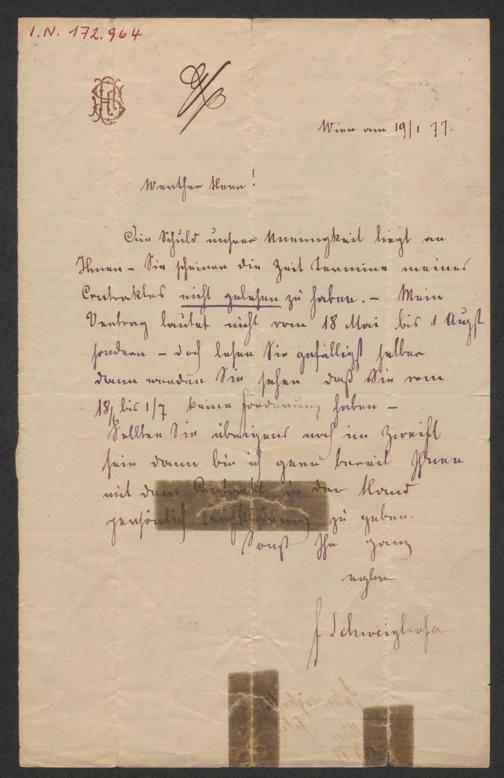 I.N. 172.964
Wien am 19/1 77.
Werther Herr!
Die Schuld unsrer Uneinigkeit liegt an
Ihnen – Sie scheinen die Zeit Termine meines
Contraktes nicht gelesen zu haben. – Mein
Vertrag lautet nicht vom 18 Mai bis 1 Augst
sondern – doch lesen Sie gefälligst selber
dann werden Sie sehen daß Sie vom
18/6 bis 1/7 keine Forderung haben –
Sollten Sie übrigens noch im Zweifl
sein dann bin ich gern bereit Ihnen
mit dem Contrakt in der Hand
persönlich Aufklärung zu geben.
Sonst Ihr ganz
Schweighofer